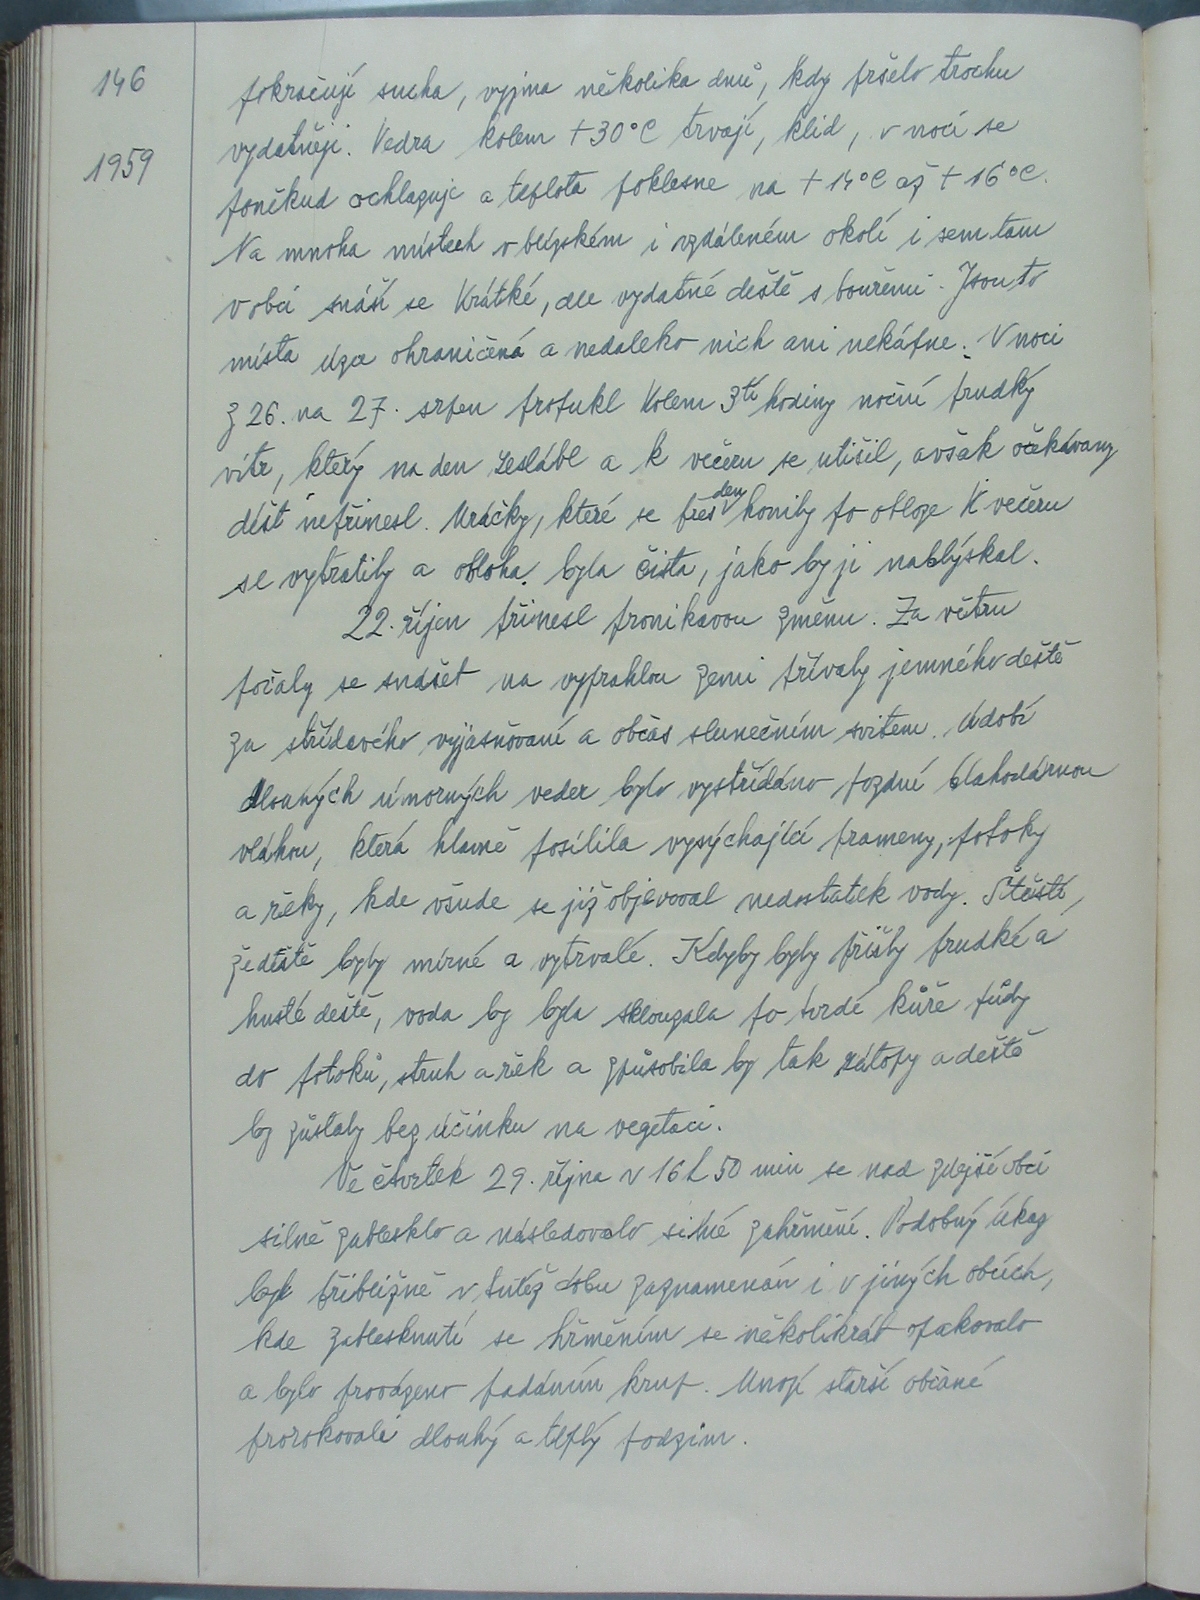 146
1959
pokračují sucha, vyjma několika dnů, kdy pršelo trochu
vydatněji. Vedra kolem +30°C trvají, klid, v noci se
poněkud ochlazuje a teplota poklesne na +14°C až +16°C.
Na mnoha místech v blízkém i vzdáleném okolí i sem tam
v obci snáší se krátké, ale vydatné deště s bouřemi. Jsou to
místa úzce ohraničená a nedaleko nich ani nekápne. V noci
z 26. na 27. srpen profukl kolem 3tí hodiny noční prudký
vítr, který na den zeslábl a k večeru se utišil, avšak očekávaný
déšť nepřinesl. Mráčky, které se přes den honily po obloze k večeru
se vytratily a obloha byla čistá, jako by ji nablýskal.
22. říjen přinesl pronikavou změnu. Za větru
počaly se snášet na vyprahlou zemi přívaly jemného deště
za střídavého vyjasňování a občas slunečním svitem. Údobí
dlouhých úmorných veder bylo vystřídáno pozdní blahodárnou
vláhou, která hlavně posílila vysýchající prameny, potoky
a řeky, kde všude se již objevoval nedostatek vody. Štěstí,
že deště byly mírné a vytrvalé. Kdyby byly přišly prudké a
husté deště, voda by byla sklouzala po tvrdé kůře půdy
do potoků, struh a řek a způsobila by tak zátopy a deště
by zůstaly bez účinku na vegetaci.
Ve čtvrtek 29. října v 16h 50 min se nad zdejší obcí
silně zablesklo a následovalo silné zahřmění. Podobný úkaz
byl přibližně v tutéž dobu zaznamenán i v jiných obcích,
kde zablesknutí se hřměním se několikrát opakovalo
a bylo provázeno padáním krup. Mnozí starší občané
prorokovali dlouhý a teplý podzim.